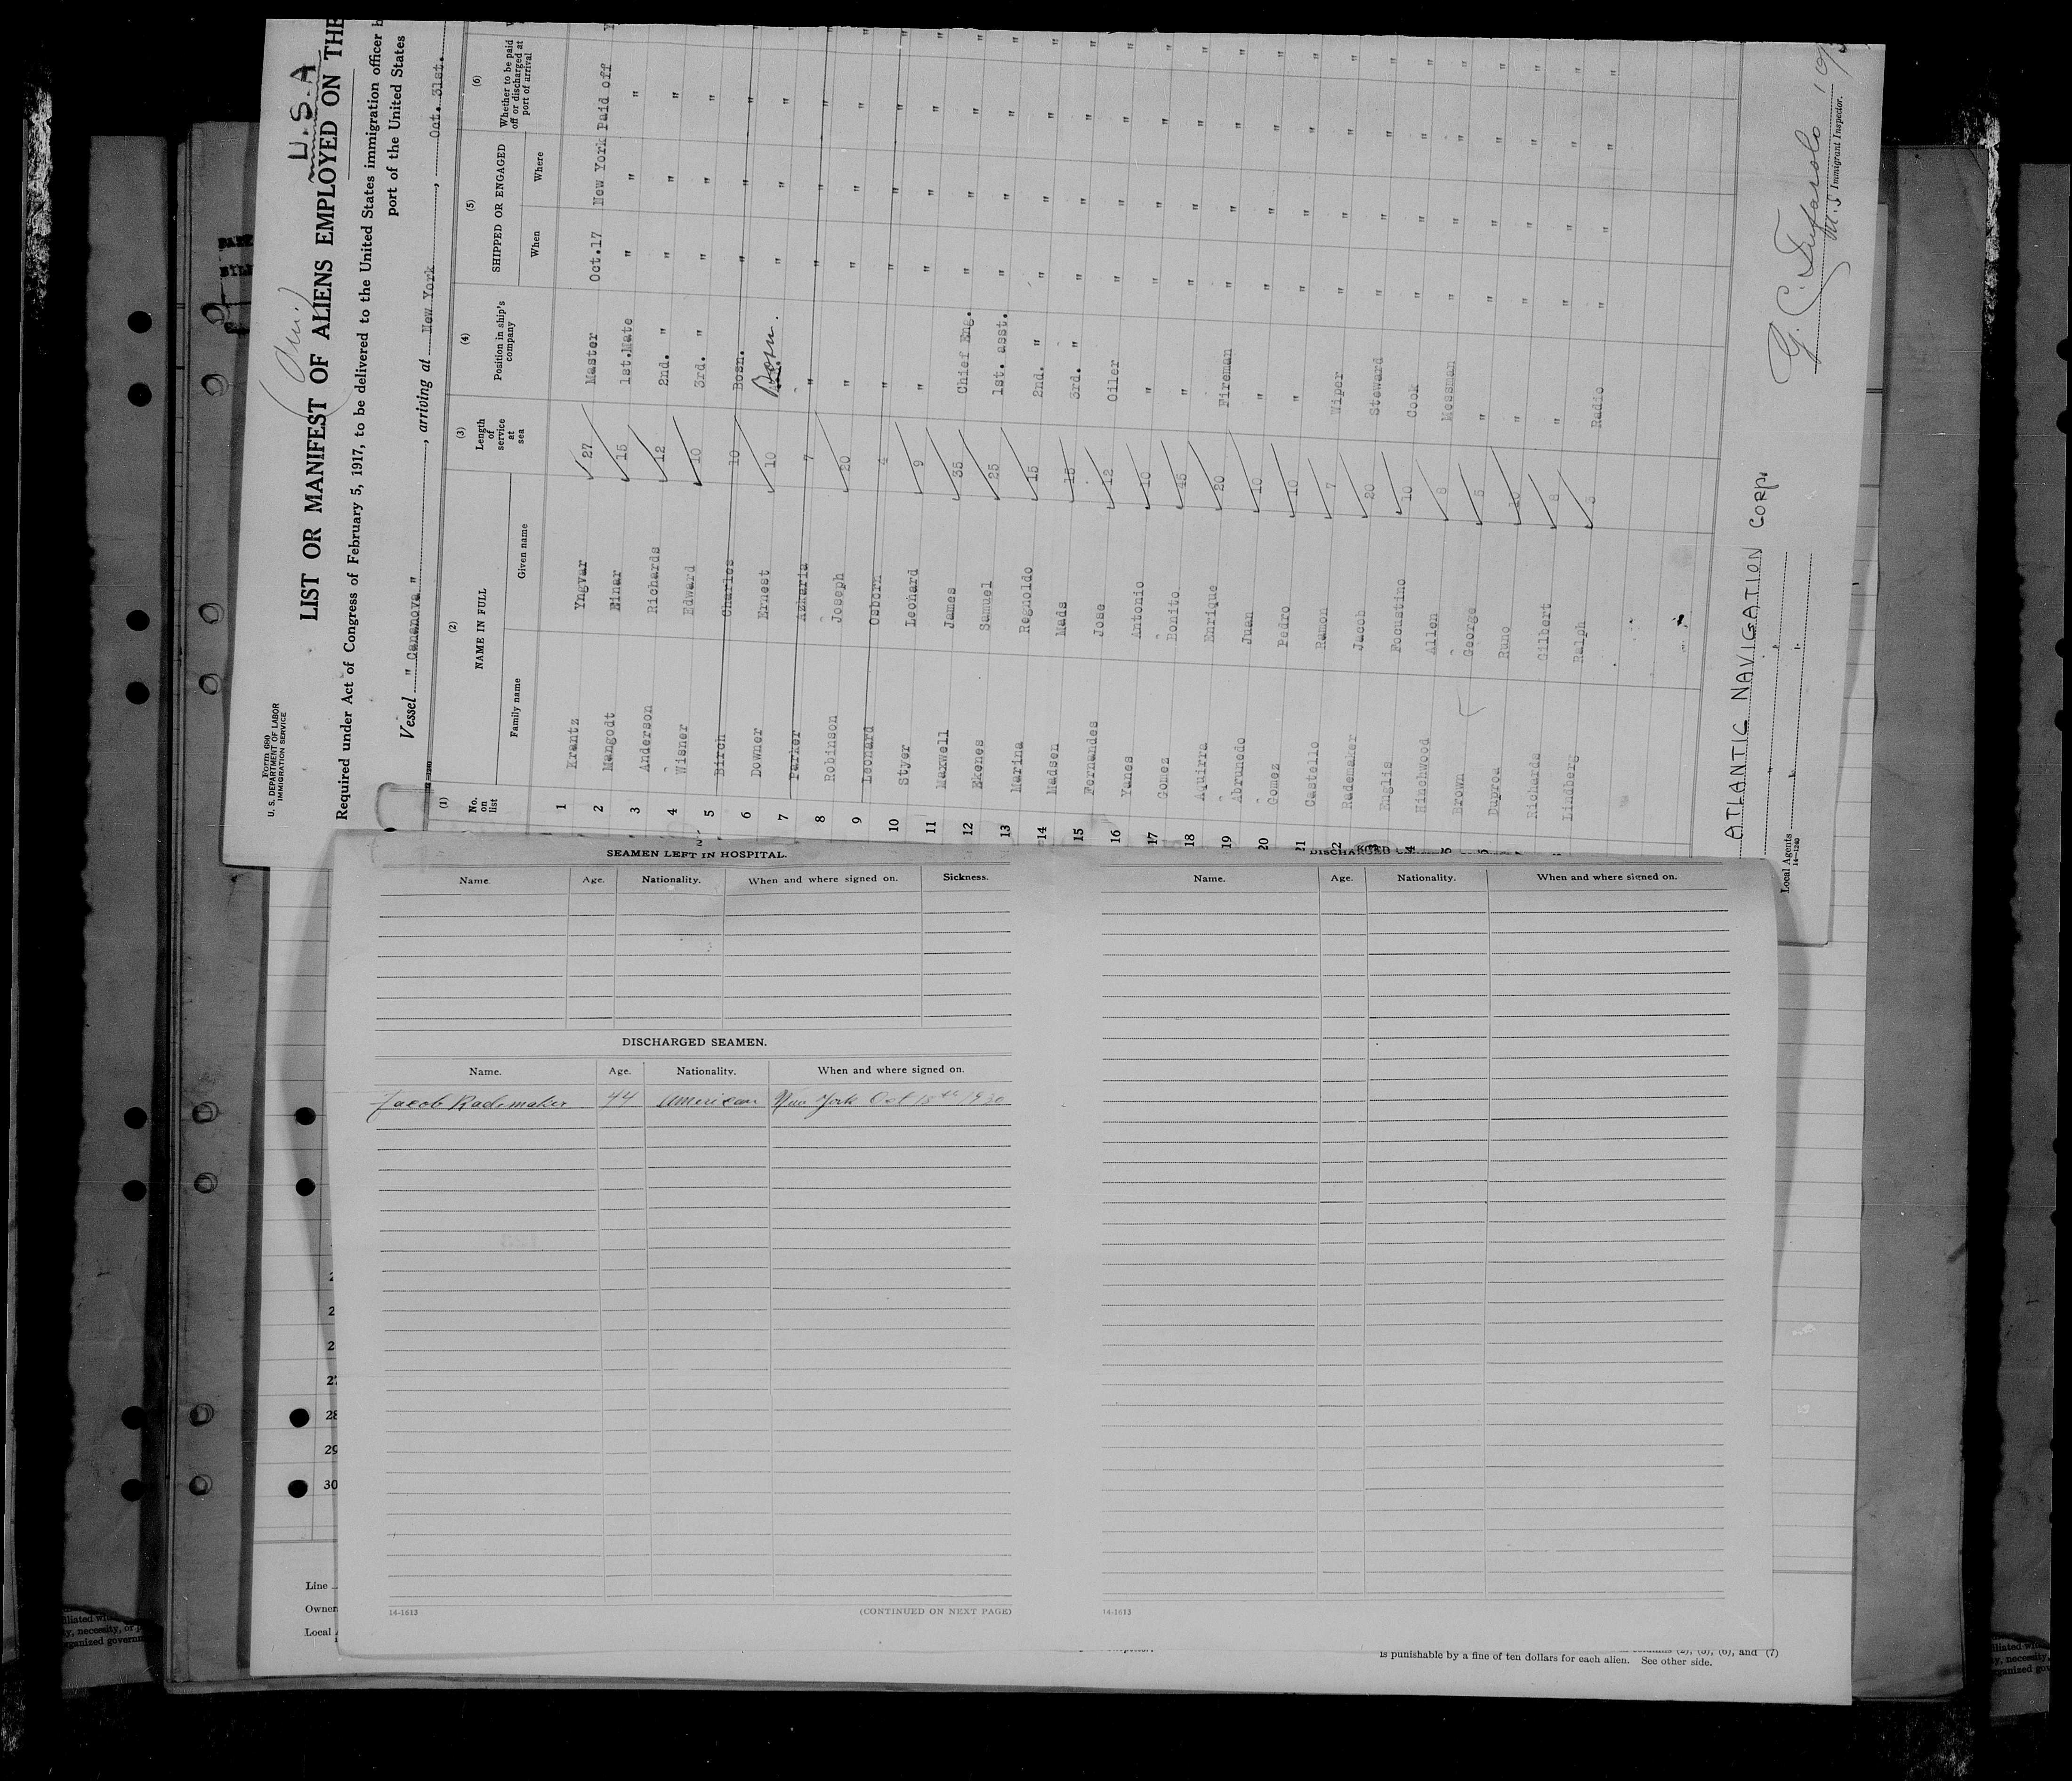 U.S.A
(Am.)
Form 680
U. S. DEPARTMENT OF LABOR
IMMIGRATION SERVICE
LIST OR MANIFEST OF ALIENS EMPLOYED ON THE
Required under Act of Congress of February 5, 1917, to be delivered to the United States immigration officer b
port of the United States
Vessel " Cananova ", arriving at New York, Oct. 31st.
(1) (2) (3) (4) (5) (6)
No. on list NAME IN FULL Length of service at sea Position in ship's company SHIPPED OR ENGAGED Whether to be paid off or discharged at port of arrival
Family name Given name When Where
1 Krantz Yngvar 27 Master Oct.17 New York Paid off
2 Mangodt Einar 15 1st.Mate " " " "
3 Anderson Richards 12 2nd. " " " " "
4 Wisner Edward 10 3rd. " " " " "
5 Birch Charles 10 Bosn. " " " "
6 Downer Ernest 10 Bosn. " " " "
7 Parker Azkaria 7 " " " " "
8 Robinson Joseph 20 " " " " "
9 Leonard Osborn 4 " " " " "
10 Styer Leonard 9 " " " " "
11 Maxwell James 35 Chief Eng. " " " "
12 Ekenes Samuel 25 1st. asst. " " " "
13 Marina Regnoldo 15 2nd. " " " " "
14 Madsen Mads 15 3rd. " " " " "
15 Fernandes Jose 12 Oiler " " " "
16 Yanes Antonio 10 " " " " "
17 Gomez Bonito 45 " " " " "
18 Aquirra Enrique 20 Fireman " " " "
19 Abrunedo Juan 10 " " " " "
20 Gomez Pedro 10 " " " " "
21 Castello Ramon 7 Wiper " " " "
22 Rademaker Jacob 20 Steward " " " "
Englis Focustino 10 Cook " " " "
Hinchwood Allen 8 Messman " " " "
Brown George 5 " " " " "
Duproa Runo 10 " " " " "
Richards Gilbert 8 " " " " "
Lindberg Ralph 3 Radio " " " "
ATLANTIC NAVIGATION CORP.
" "
" "
Local Agents
14—1240
U.S. Immigrant Inspector.
SEAMEN LEFT IN HOSPITAL.
Name. Age. Nationality. When and where signed on. Sickness.
DISCHARGED SEAMEN.
Name. Age. Nationality. When and where signed on.
Jacob Rademaker 44 American New York Oct 18th 1930
14-1613 (CONTINUED ON NEXT PAGE)
DISCHARGED
Name. Age. Nationality. When and where signed on.
14-1613
28
29
30
Line
Owner
Local
(6), and (7)
is punishable by a fine of ten dollars for each alien. See other side.
y, necessity, of
rganized governm